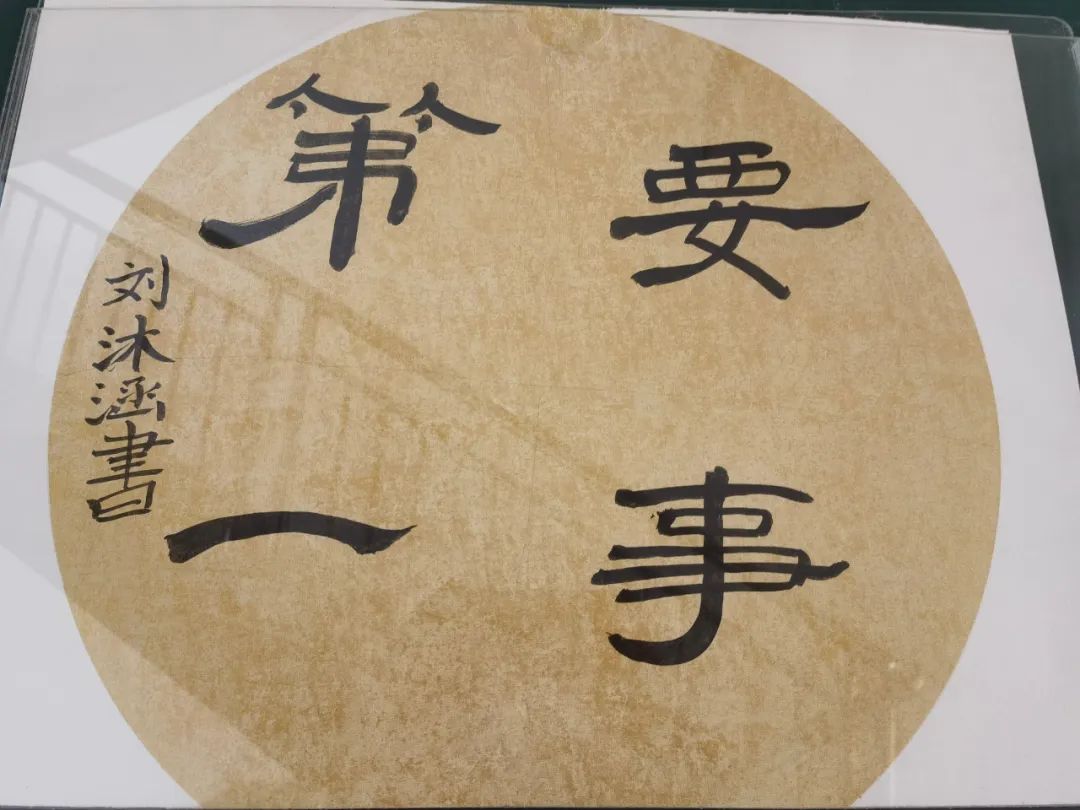 要事
第一
刘沐涵書